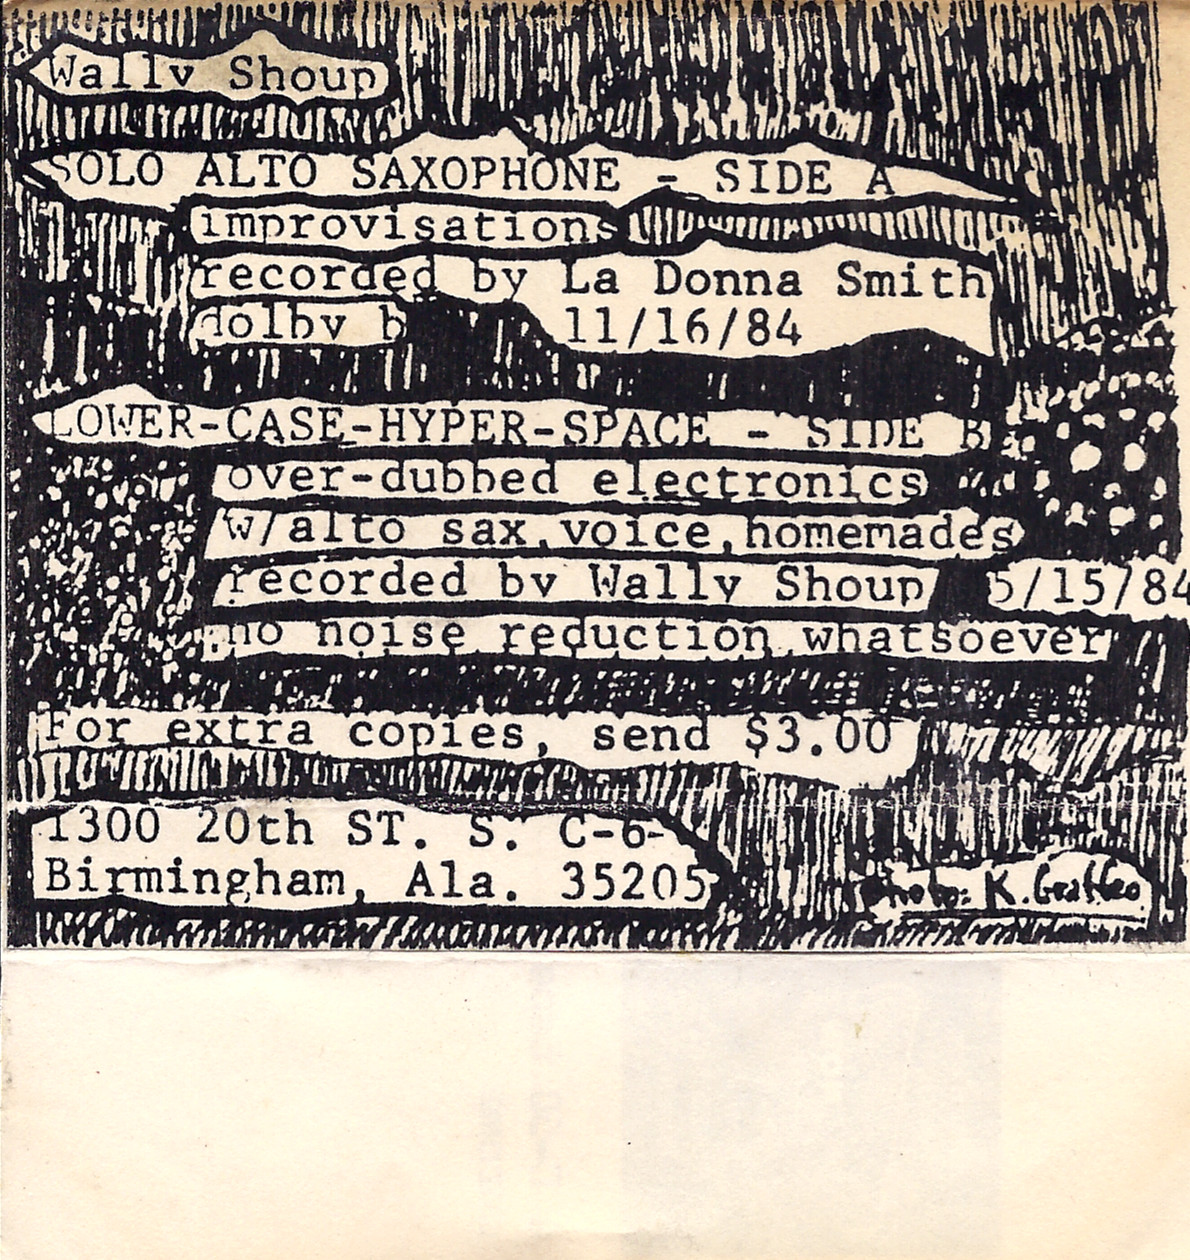 Wally Shoup
SOLO ALTO SAXOPHONE - SIDE A
improvisations
recorded by La Donna Smith
dolby b 11/16/84
LOWER-CASE-HYPER-SPACE - SIDE B
over-dubbed electronics
w/alto sax,voice,homemades
recorded by Wally Shoup 5/15/84
no noise reduction whatsoever
For extra copies, send $3.00
1300 20th ST. S. C-6
Birmingham, Ala. 35205
Photo: K.